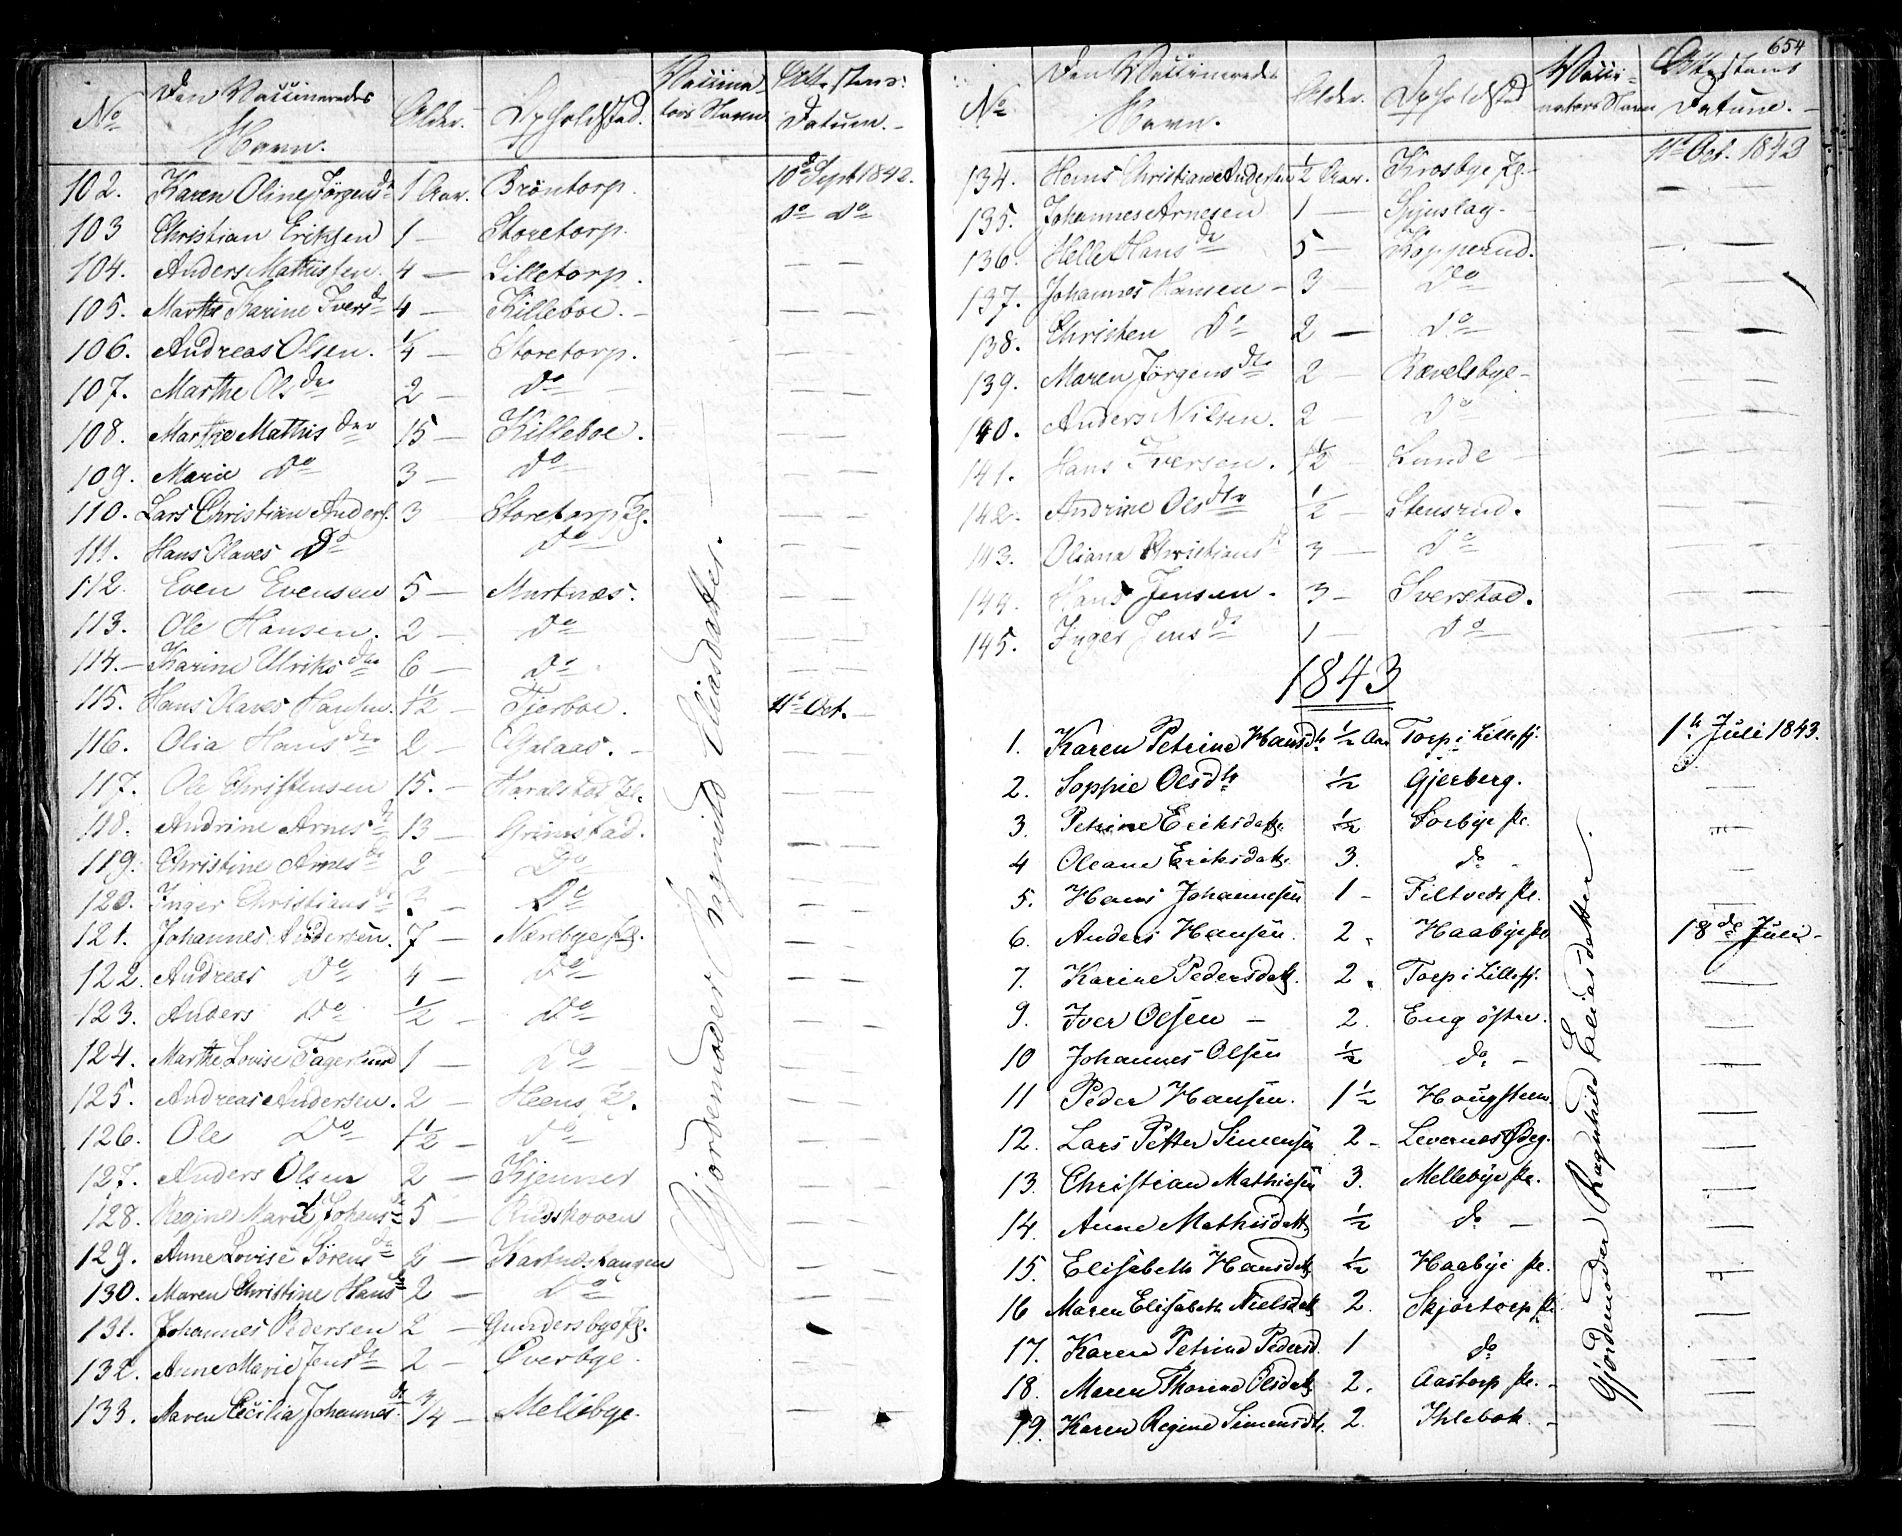 No Den Vaccineredes Navn. Alder. Opholdsted. Vaccinators Navn Attestens Datum.
102. Karen Oline Jørgensdr 1 Aar. Bröntorp. 10de Sept 1842.
103 Christian Eriksen 1 — Storetorp. Do Do
104. Anders Mathissen. 4 — Lilletorp. — —
105. Marthe Karine Iversdr 4 — Killeboe. — — —
106. Andreas Olsen. 1/4 — Storetorp. — —
107. Marthe Olsdtr 2 — Do — — —
108. Marthe Mathisdtr 15 — Killeboe. — —
109. Marie Do 3 — Do — —
110. Lars Christian Anders. 3 — Storetorp Eg. — —
111. Hans Olaves Do Do — —
112. Even Evensen 5 — Murtnæs. — —
113. Ole Hansen. 2 — Do — —
114. — Karine Ulriksdtr 6 — Do — —
115. Hans Olaves Hansen. 1 1/2 — Tjerboe. 11te Oct. —
116. Olia Hansdtr 2 — — — —
117. Ole Christensen 15. — Haralstad — —
118. Andrine Arnesdr 13 — Grimstad. — —
119. Christine Arnesdr 2 — Do — —
120. Inger Christiansdr — Do — —
121. Johannes Andersen. 7 — Nærebye Eg. — —
122. Andreas Do 4 — Do — —
123. Anders Do 1/2 — Do — —
124. Marthe Lovise Fagerlund 1 — Do — — —
125. Andreas Andersen. 2 — Heens Eg. — —
126. Ole Do 1 1/2 — Do — —
127. Anders Olsen 2 — Kjenner — —
128. Regine Marie Johansdr 5 — — —
129. Anne Lovise Sörensdr 2 — — —
130. Maren Christine Hansdr 2 — Do — —
131. Johannes Pedersen 2 — Gundersbye Eg.
132. Anne Marie Jensdr 2 — Överbye. — —
133. Maren Cecilia Johannesdr. 3/4 — Mellebye. —
Gjordemoder Ragnild Eliasdatter.
654
No Den Vaccineredes Navn. Alder. Opholdsted Vaccinators Navn Attestens Datum. —
134. Hans Christian Andersen 1/2 Aar. Krosbye Eg. — 11te Oct. 1842
135. Johannes Arnesen 1 — — —
136. Helle Hansdr 5 — Kopperud. — —
137. Johannes Hansen — 3 — Do — —
138. Christen Do 2 — Do — —
139. Maren Jørgensdtr 2 — Rævelsbye — — —
140. Anders Nilsen. 2 Do — —
141. Hans Iversen. 1 1/2 — Lunde — — —
142. Andrine Olsdtr 1/2 — Stensrud. — —
143. Oliana Christiansd 3 — Do — —
144. Hans Jensen. 3 — Sverstad. — —
145. Inger Jensdr 1 — Do — —
1843
1. Karen Petrine Hansdtr 1/2 Aar Torp i Lilleff. 1te Juli 1843.
2. Sophie Olsdtr 1/2 Gjerberg. —
3. Petrine Eriksdatt. 1/2 Sorbye Ee. —
4 Oleane Eriksdatt. 3. do — —
5. Hans Johannesen 1 — Filtvedt Ee. —
6. Anders Hansen. 2 Haabye Ee 18de Juli —
7. Karine Pedersdatt. 2 Torp i Lilleff. —
9. Iver Olsen — 2. Eng östre. —
10 Johannes Olsen 1/2 do — —
11 Peder Hansen. 1 1/2 Hougsteen. —
12. Lars Petter Simensen 2 — Levernæs Ödeg. —
13. Christian Mathiesen 3. Mellebye Ee. —
14. Anne Mathisdatt 1/2 do — —
15. Elisabeth Hansdatt 1/2 Haabye Ee. —
16 Maren Elisabeth Nielsdatt 2. Skjörtorp Ee —
17. Karen Petrine Pedersd. 1 do —
18. Maren Thorine Olsdatt 2. Aastorp Ee. — —
19. Karen Regine Simensdtr. 2. Ihlebæk. — —
Gjordemoder Ragnhild Eliasdatter.